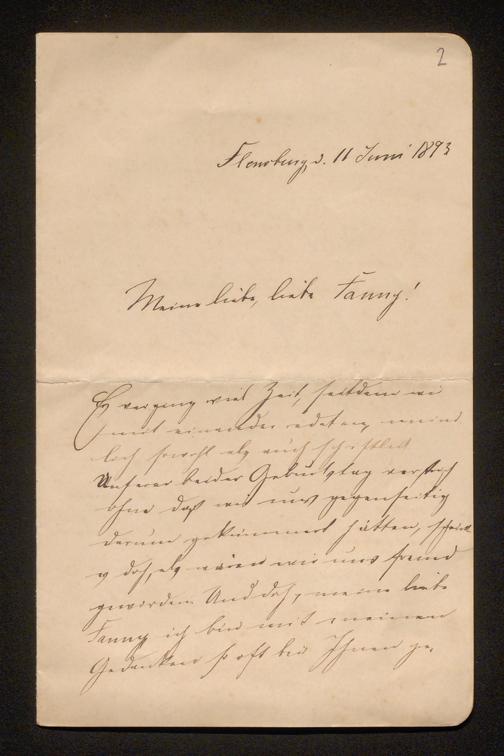 2
Flensburg, d. 11 Juni 1893
Meine liebe, liebe Fanny!
Es verging viel Zeit, seitdem wir
mit einander redeten, münd
lich sowohl als auch schriftlich
Unserer beider Geburtstag verstrich
ohne daß wir uns gegenseitig
darum gekümmert hätten, scheint
es doch, als wären wir uns fremd
geworden. Und doch, meine liebe
Fanny ich bin mit meinen
Gedanken so oft bei Ihnen ge,